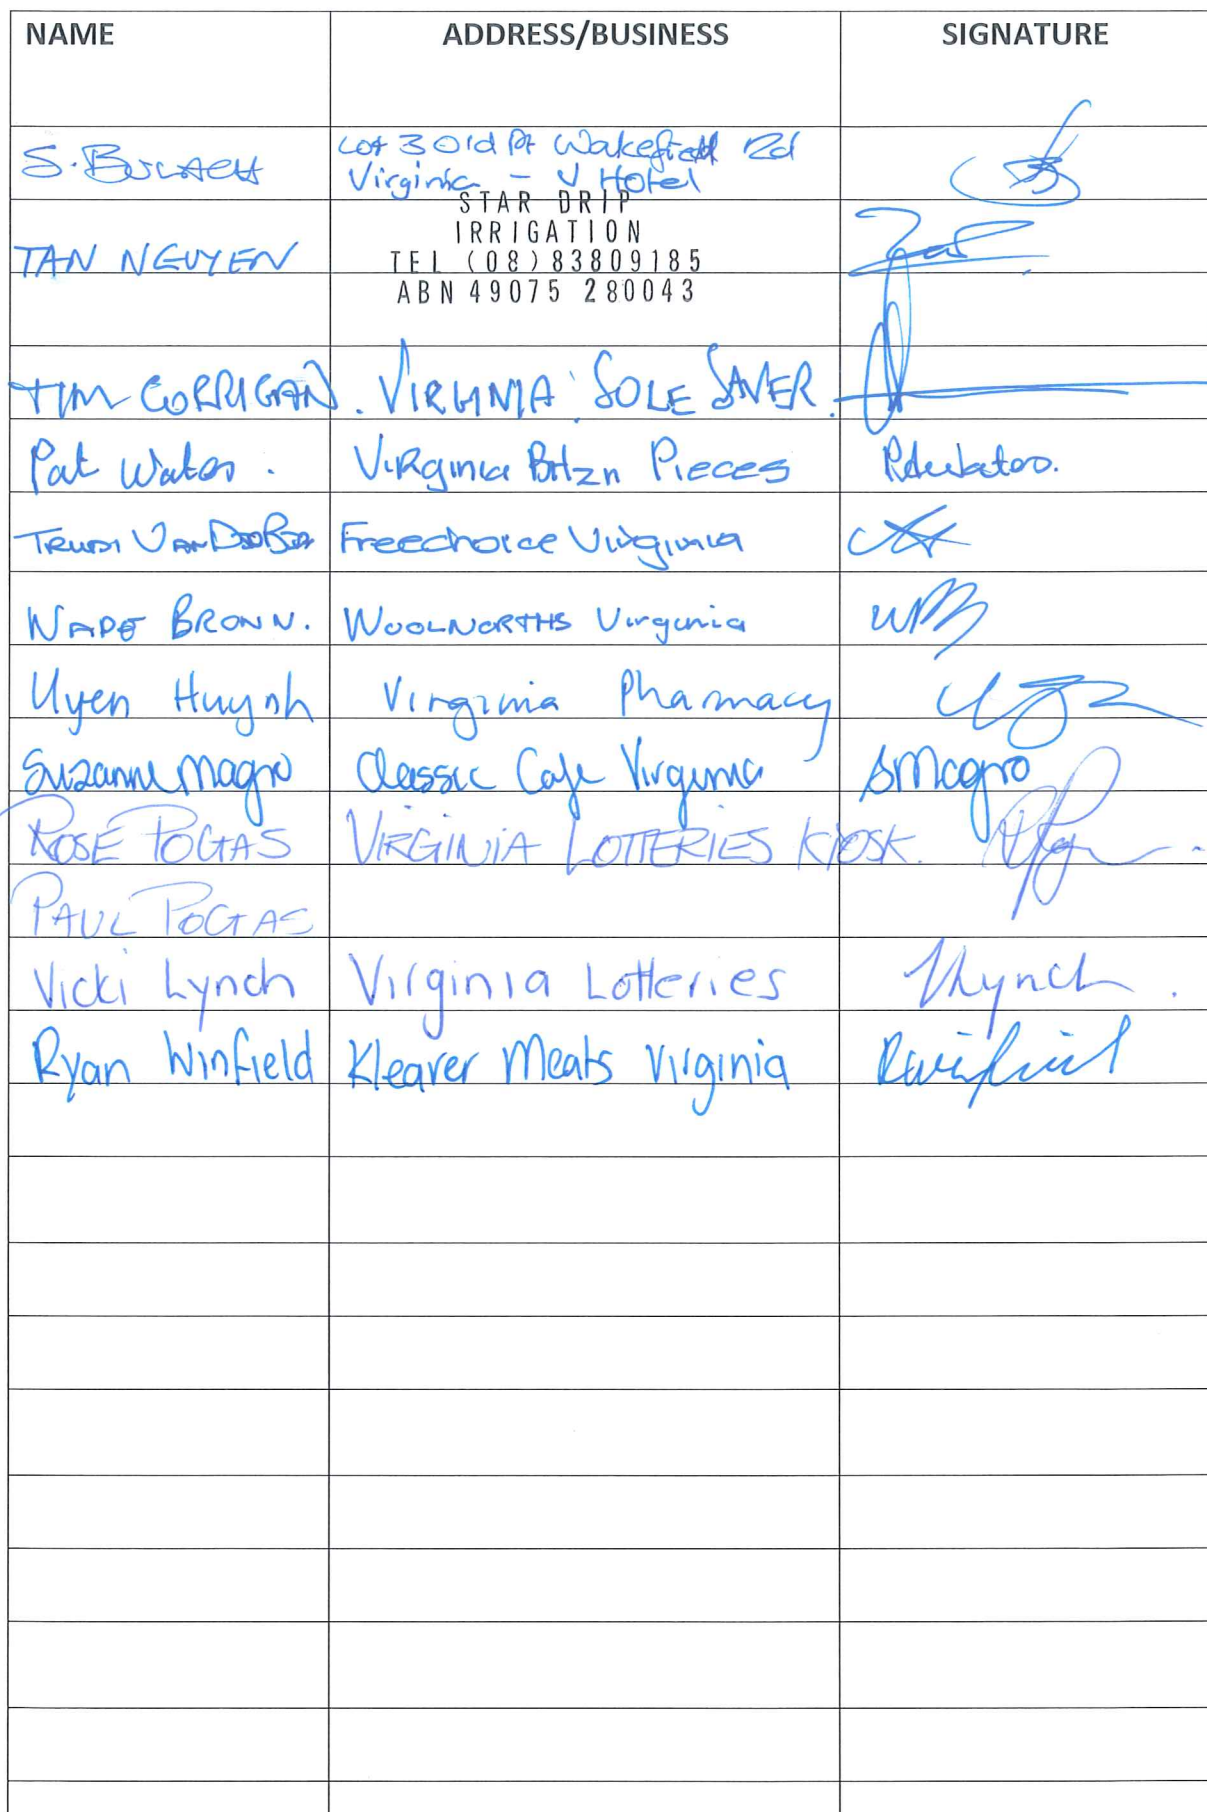 NAME ADDRESS/BUSINESS SIGNATURE
S. Lot 3 Old Pt Wakefield Rd
Virginia - V Hotel
STAR DRIP
IRRIGATION
TAN NGUYEN TEL (08) 83809185
ABN 49075 280043
TIM CORRIGAN. VIRGINIA SOLE SAVER.
Pat Waters. Virginia Pieces
Freechoice Virginia
WADE BROWN. WOOLWORTHS Virginia
Uyen Huynh Virginia Pharmacy
Suzanne Magro Classic Cafe Virginia SMagro
ROSE POGAS VIRGINIA LOTTERIES KIOSK.
PAUL POGAS
Vicki Lynch Virginia Lotteries VLynch.
Ryan Winfield Kleaver Meats Virginia RWinfield